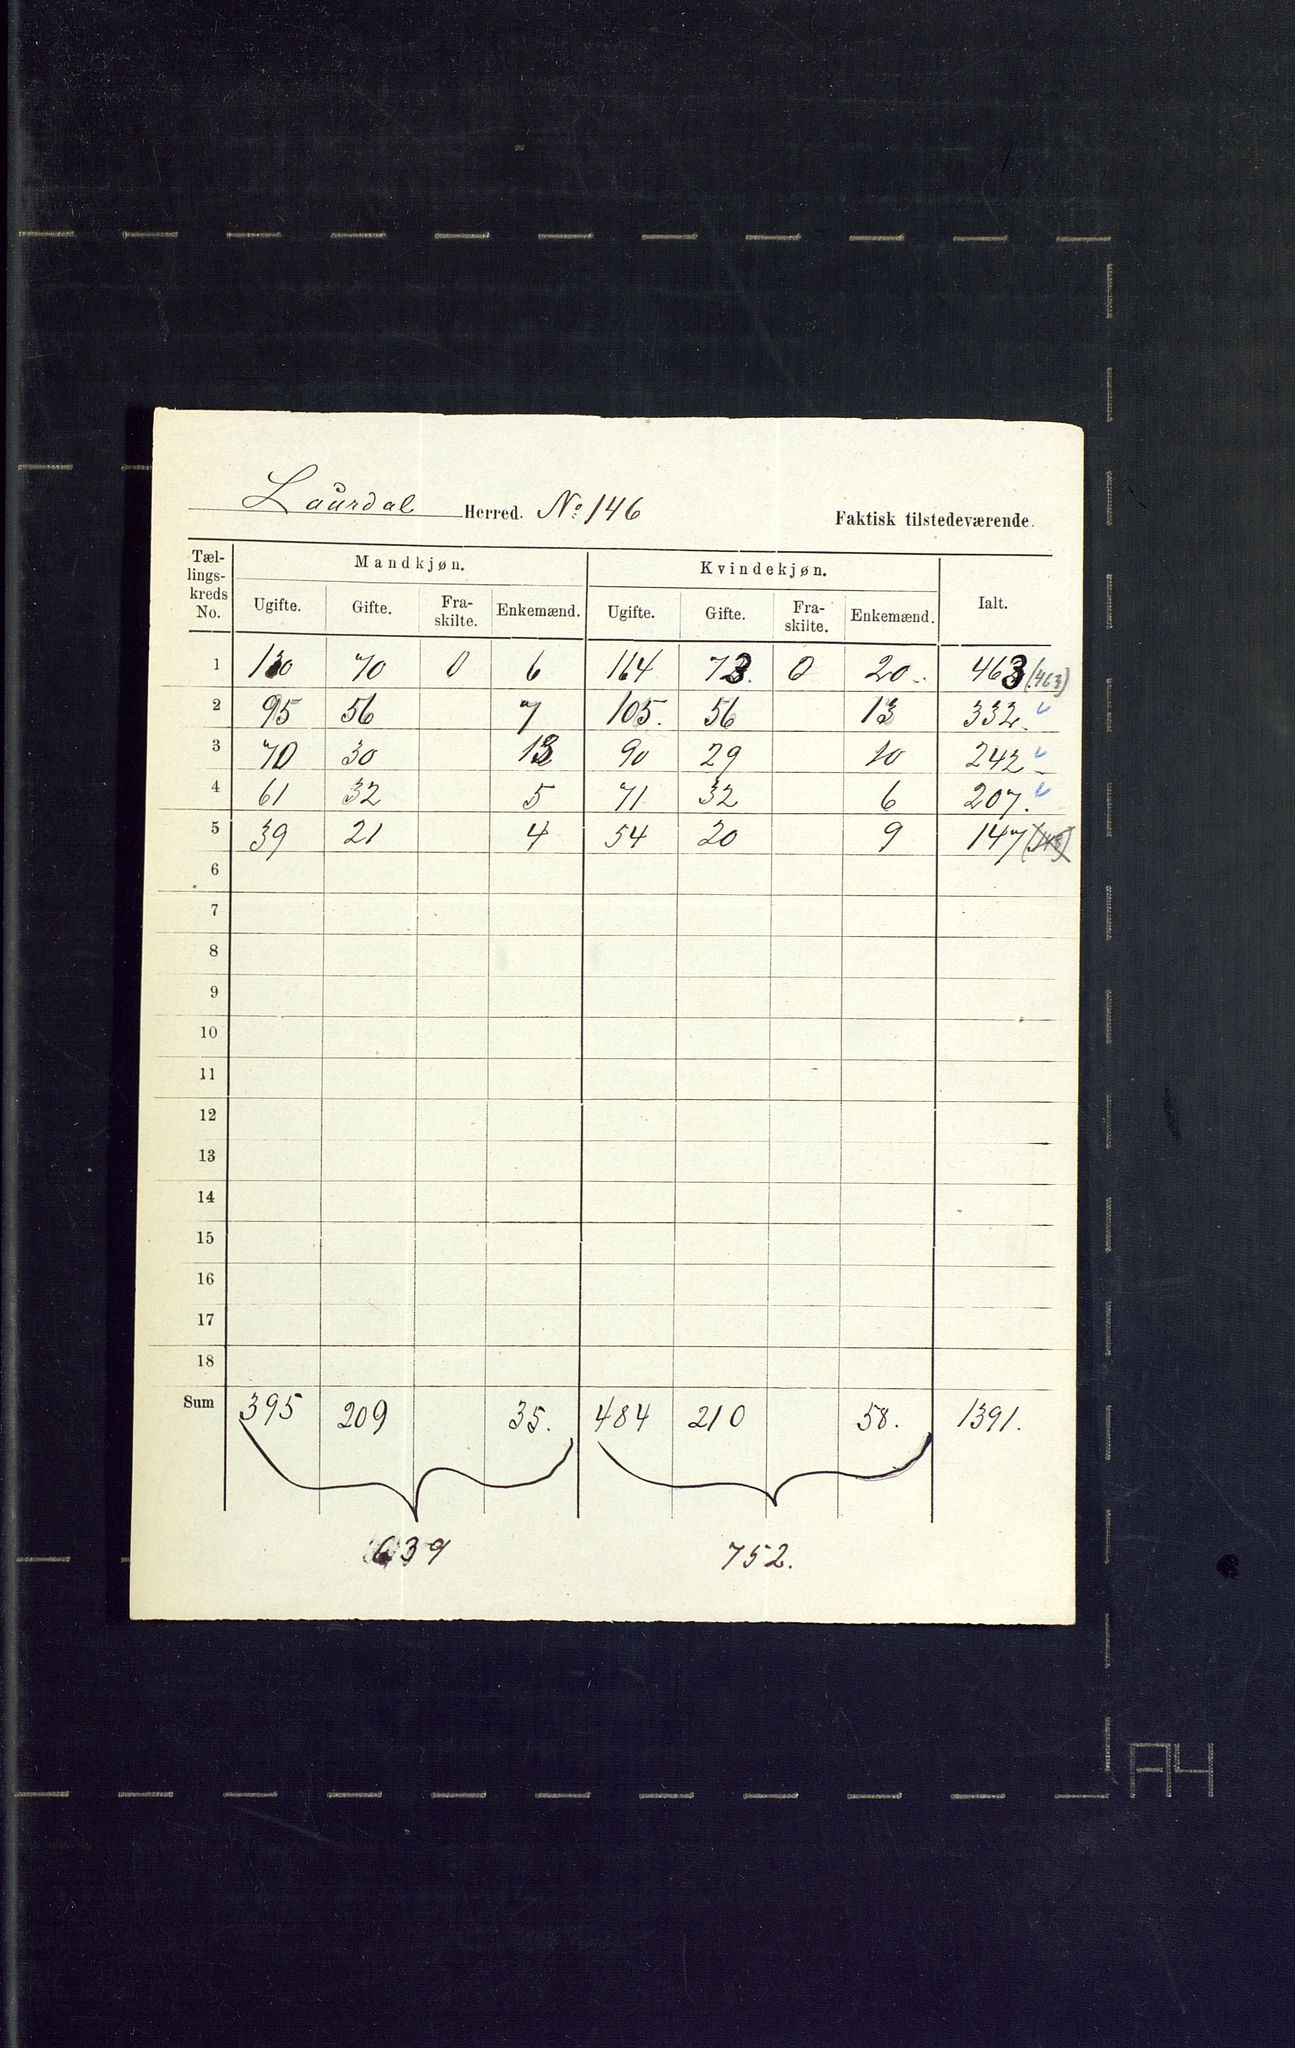 Laurdal Herred. No 146
Faktisk tilstedeværende.
Tællingskreds No. Mandkjøn. Kvindekjøn. Ialt.
Ugifte. Gifte. Fraskilte. Enkemænd. Ugifte. Gifte. Fraskilte. Enkemænd.
1 130 70 0 6 164 73. 0 20. 463 (463)
2 95 56 7 105. 56 13 332.
3 70 30 13 90 29 10 242
4 61 32 5 71 32 6 207.
5 39 21 4 54 20 9 147
6
7
8
9
10
11
12
13
14
15
16
17
18
Sum 395 209 35. 484 210 58. 1391.
639 752.
A4